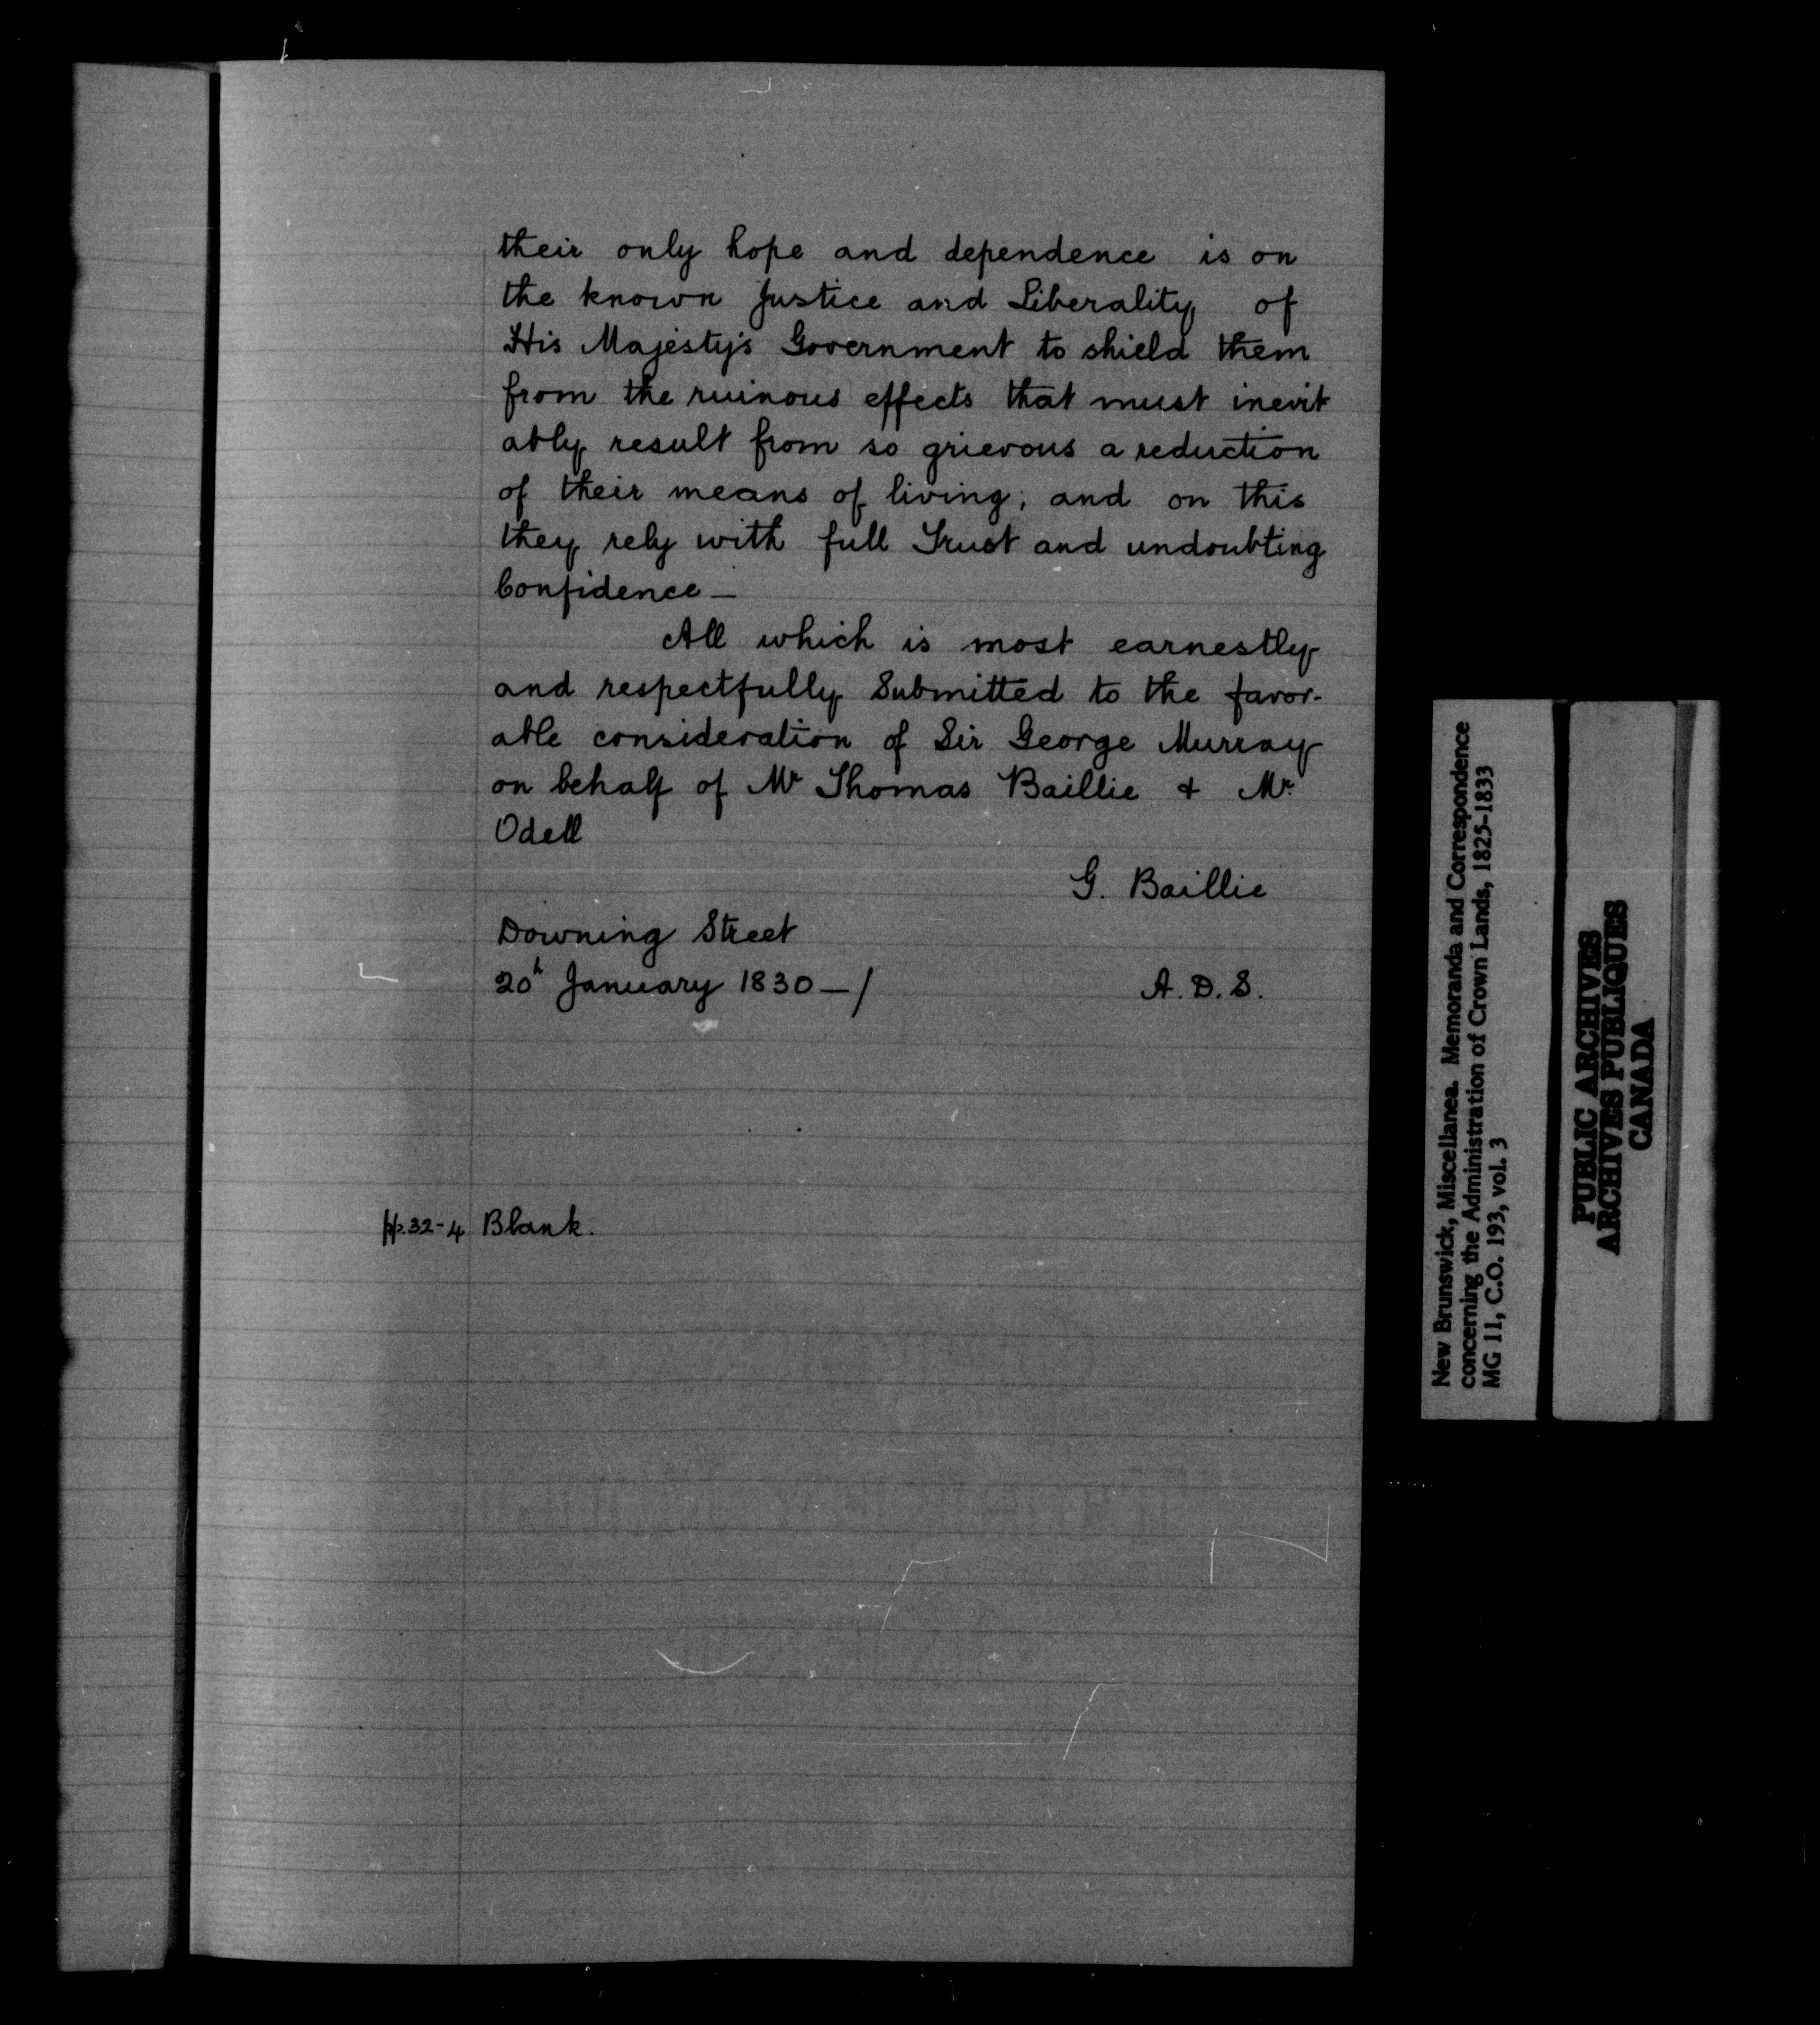 their only hope and dependence is on
the known Justice and Liberality of
His Majesty's Government to shield them
from the ruinous effects that must inevit
ably result from so grievous a reduction
of their means of living; and on this
they rely with full Trust and undoubting
Confidence —
All which is most earnestly
and respectfully Submitted to the favor-
able consideration of Sir George Murray
on behalf of Mr Thomas Baillie & Mr.
Odell
G. Baillie
Downing Street
20h January 1830 — /
A. D. S.
pp. 32-4 Blank.
New Brunswick, Miscellanea. Memoranda and Correspondence
concerning the Administration of Crown Lands, 1825-1833
MG 11, C.O. 193, vol. 3
PUBLIC ARCHIVES
ARCHIVES PUBLIQUES
CANADA